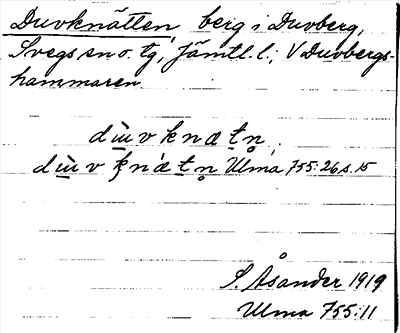 Duvknätten, berg i Duvberg,
Svegs sn o. tg, Jämtl. l.; V Duvbergs-
hammaren
du̇v knætn̥,
du̇v kn̥ætn̥ Ulma 755:26 s. 15
S. Åsander 1919
Ulma 755:11